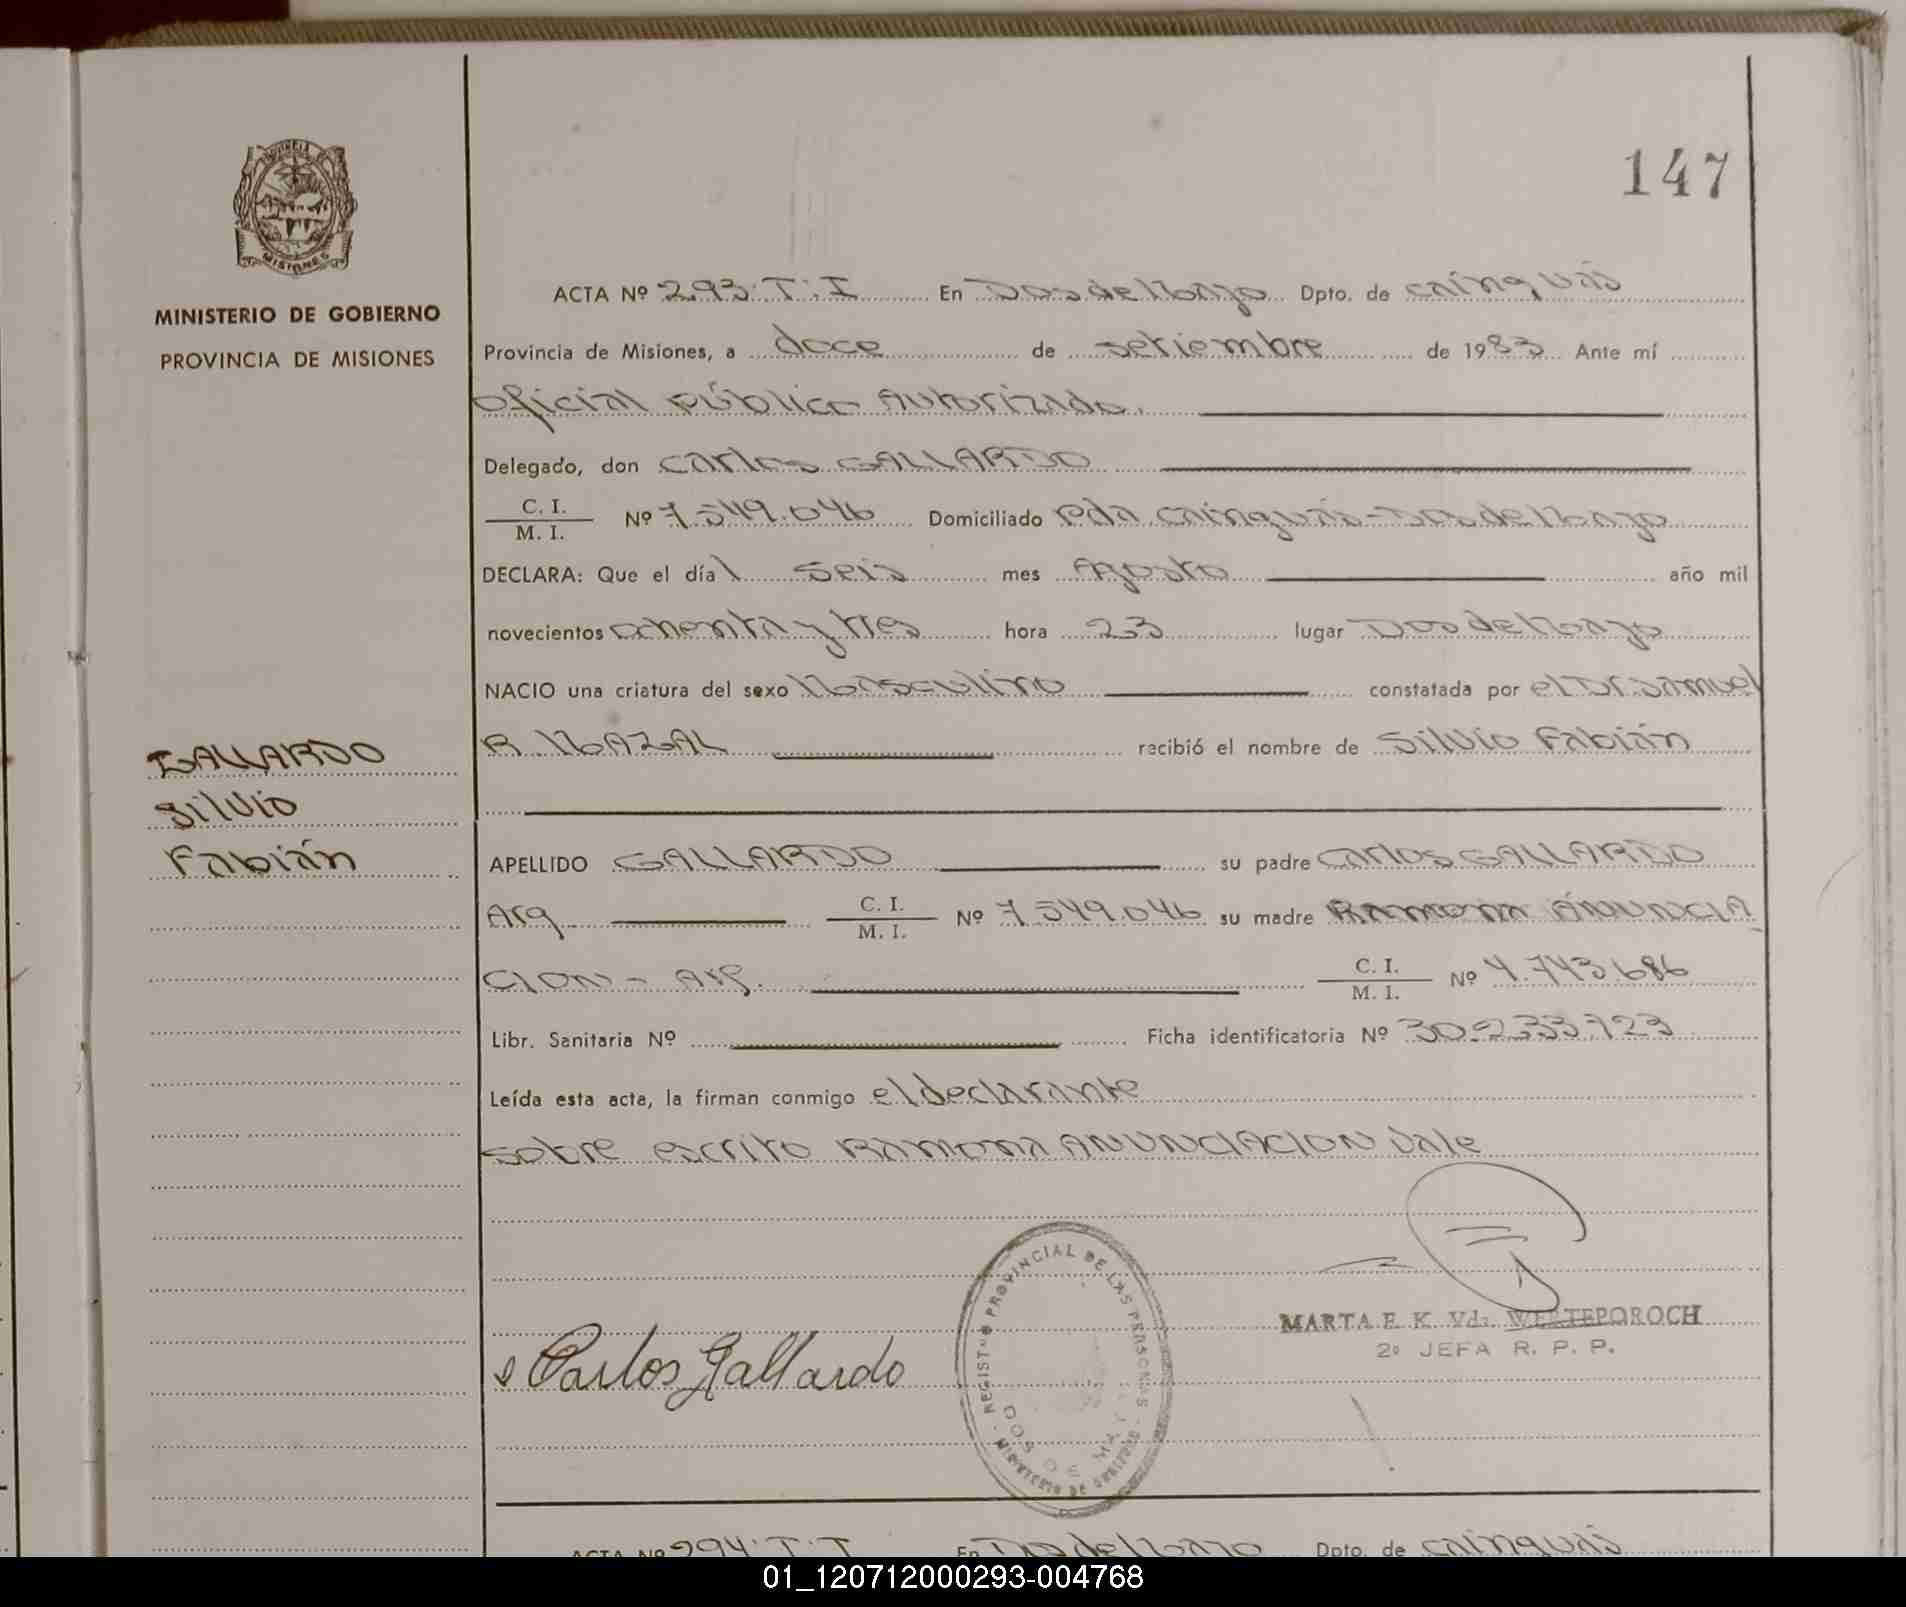 147
PROVINCIA DE
MISIONES
MINISTERIO DE GOBIERNO
PROVINCIA DE MISIONES
ACTA Nº 293. T. I En Dos de Mayo Dpto. de Cainguás
Provincia de Misiones, a doce de setiembre de 1983 Ante mí
Oficial Público Autorizado.
Delegado, don Carlos GALLARDO
C. I.
M. I. Nº 7.549.046 Domiciliado Pda. Cainguás - Dos de Mayo
DECLARA: Que el día seis mes Agosto año mil
novecientos ochenta y tres hora 23 lugar Dos de Mayo
NACIO una criatura del sexo Masculino constatada por el Dr. Samuel
R. MAZAL recibió el nombre de Silvio Fabián
GALLARDO
Silvio
Fabián
APELLIDO GALLARDO su padre Carlos GALLARDO
Arg. C. I. M. I. Nº 7.549.046 su madre RAMONA ANUNCIA
CION - Arg. C. I. M. I. Nº 4.743.686
Libr. Sanitaria Nº Ficha identificatoria Nº 30.233.723
Leída esta acta, la firman conmigo el declarante
Sobre escrito RAMONA ANUNCIACION Vale
REGISTRO PROVINCIAL DE LAS PERSONAS
DOS DE MAYO
MINISTERIO DE GOBIERNO
Carlos Gallardo
MARTA E. K. Vda. WERTEPOROCH
2º JEFA R. P. P.
ACTA Nº 294. T. I En Dos de Mayo Dpto. de Cainguás
01_120712000293-004768